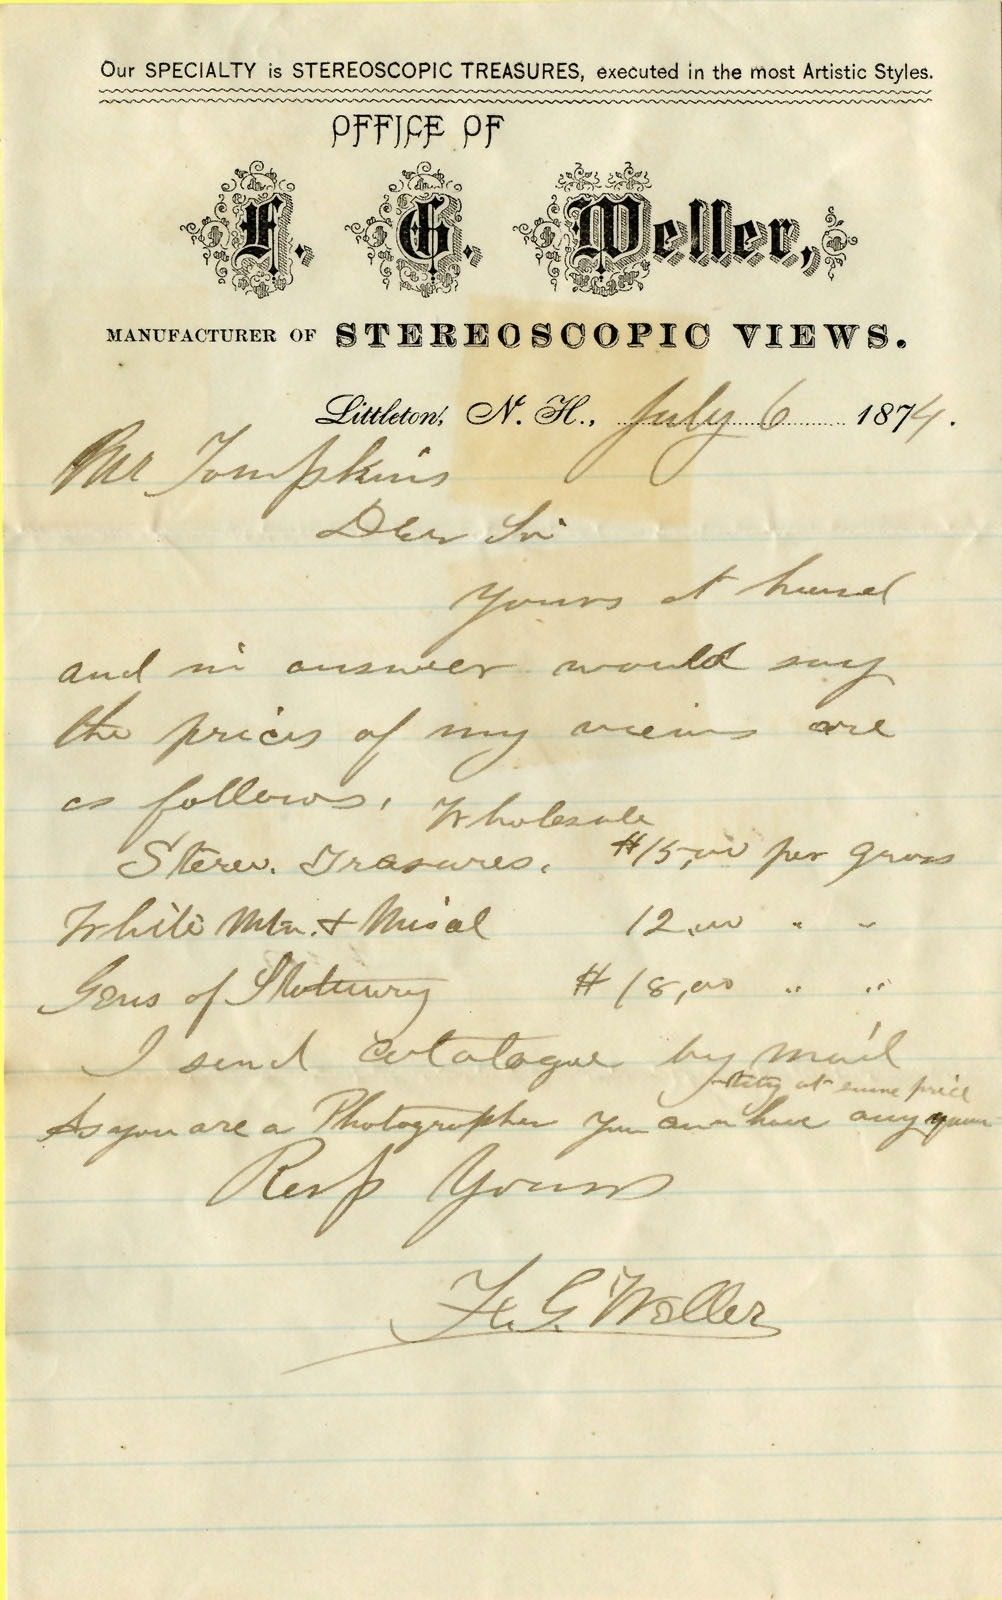 Our SPECIALTY is STEREOSCOPIC TREASURES, executed in the most Artistic Styles.
OFFICE OF
F. G. Weller,
MANUFACTURER OF STEREOSCOPIC VIEWS.
Littleton, N. H., July 6 1874.
Mr Tompkins
Dear Sir
Yours at hand
and in answer would say
the prices of my views are
as follows. Wholesale
Stereo. Treasures. $15,00 per gross
White Mtn. & Misal 12,00 " "
Gems of Statuary $18,00 " "
I send catalogue by mail
As you are a Photographer you can have any quan
tity at same price
Resp Yours
F. G. Weller